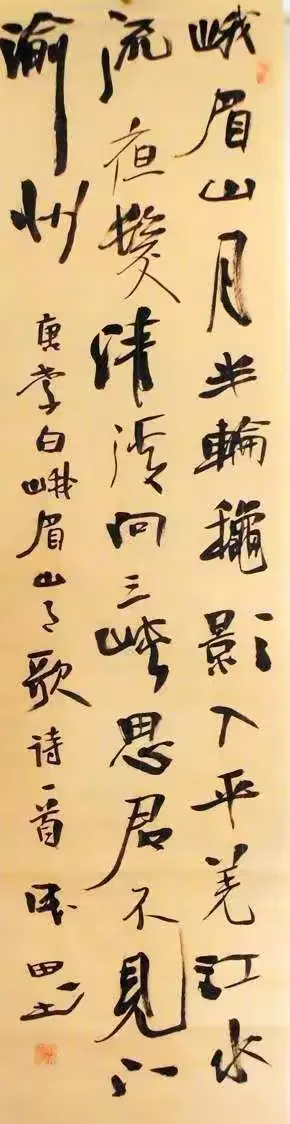 峨眉山月半輪龝影入平羌江水
流夜發清溪向三峡思君不見下
渝州
唐李白峨眉山月歌诗一首